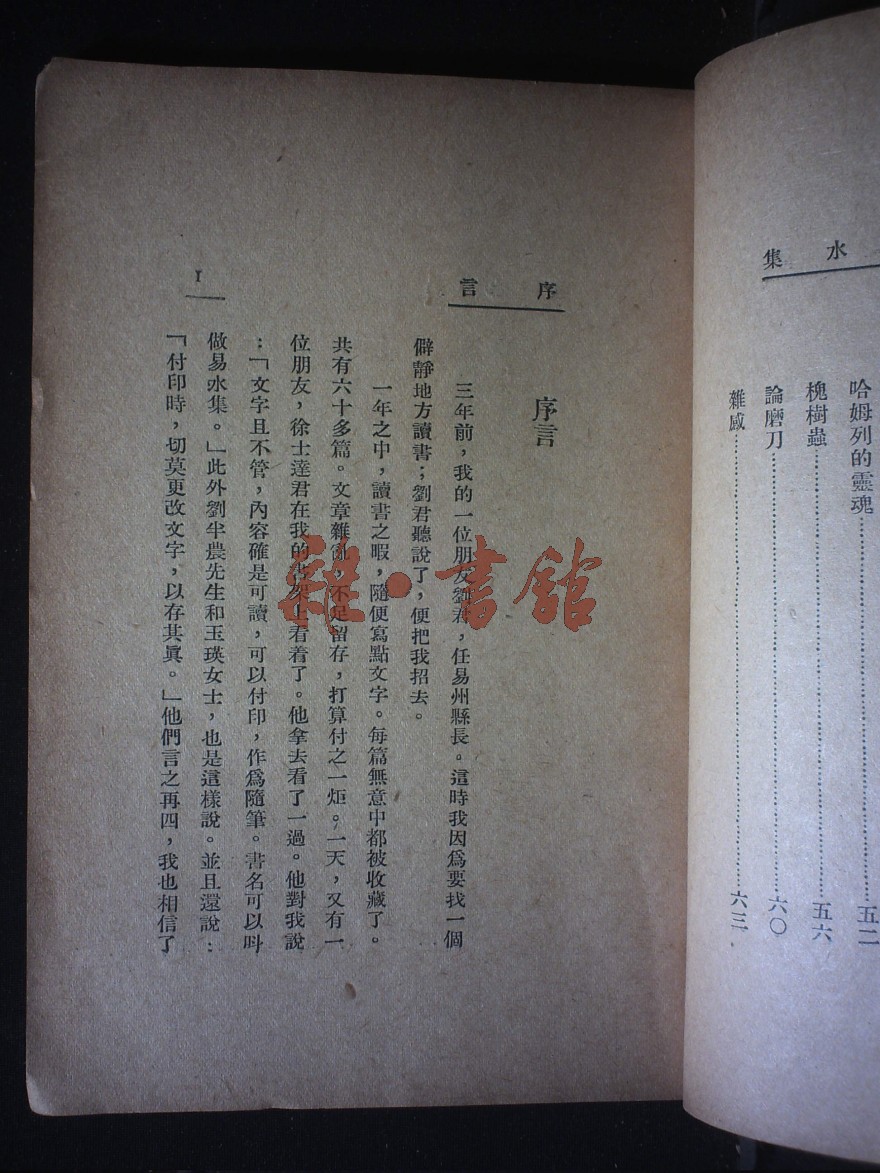 水集
哈姆列的靈魂……五二
槐樹蟲……五六
論磨刀……六〇
雜感……六三
序言
序言
三年前，我的一位朋友劉君，任易州縣長。這時我因爲要找一個
僻靜地方讀書；劉君聽說了，便把我招去。
一年之中，讀書之暇，隨便寫點文字。每篇無意中都被收藏了。
共有六十多篇。文章雜亂，不足留存，打算付之一炬。一天，又有一
位朋友，徐士達君在我的書架上看着了。他拿去看了一過。他對我說
：「文字且不管，內容確是可讀，可以付印，作爲隨筆。書名可以叫
做易水集。」此外劉半農先生和玉瑛女士，也是這樣說。並且還說：
「付印時，切莫更改文字，以存其眞。」他們言之再四，我也相信了
1
雜·書館